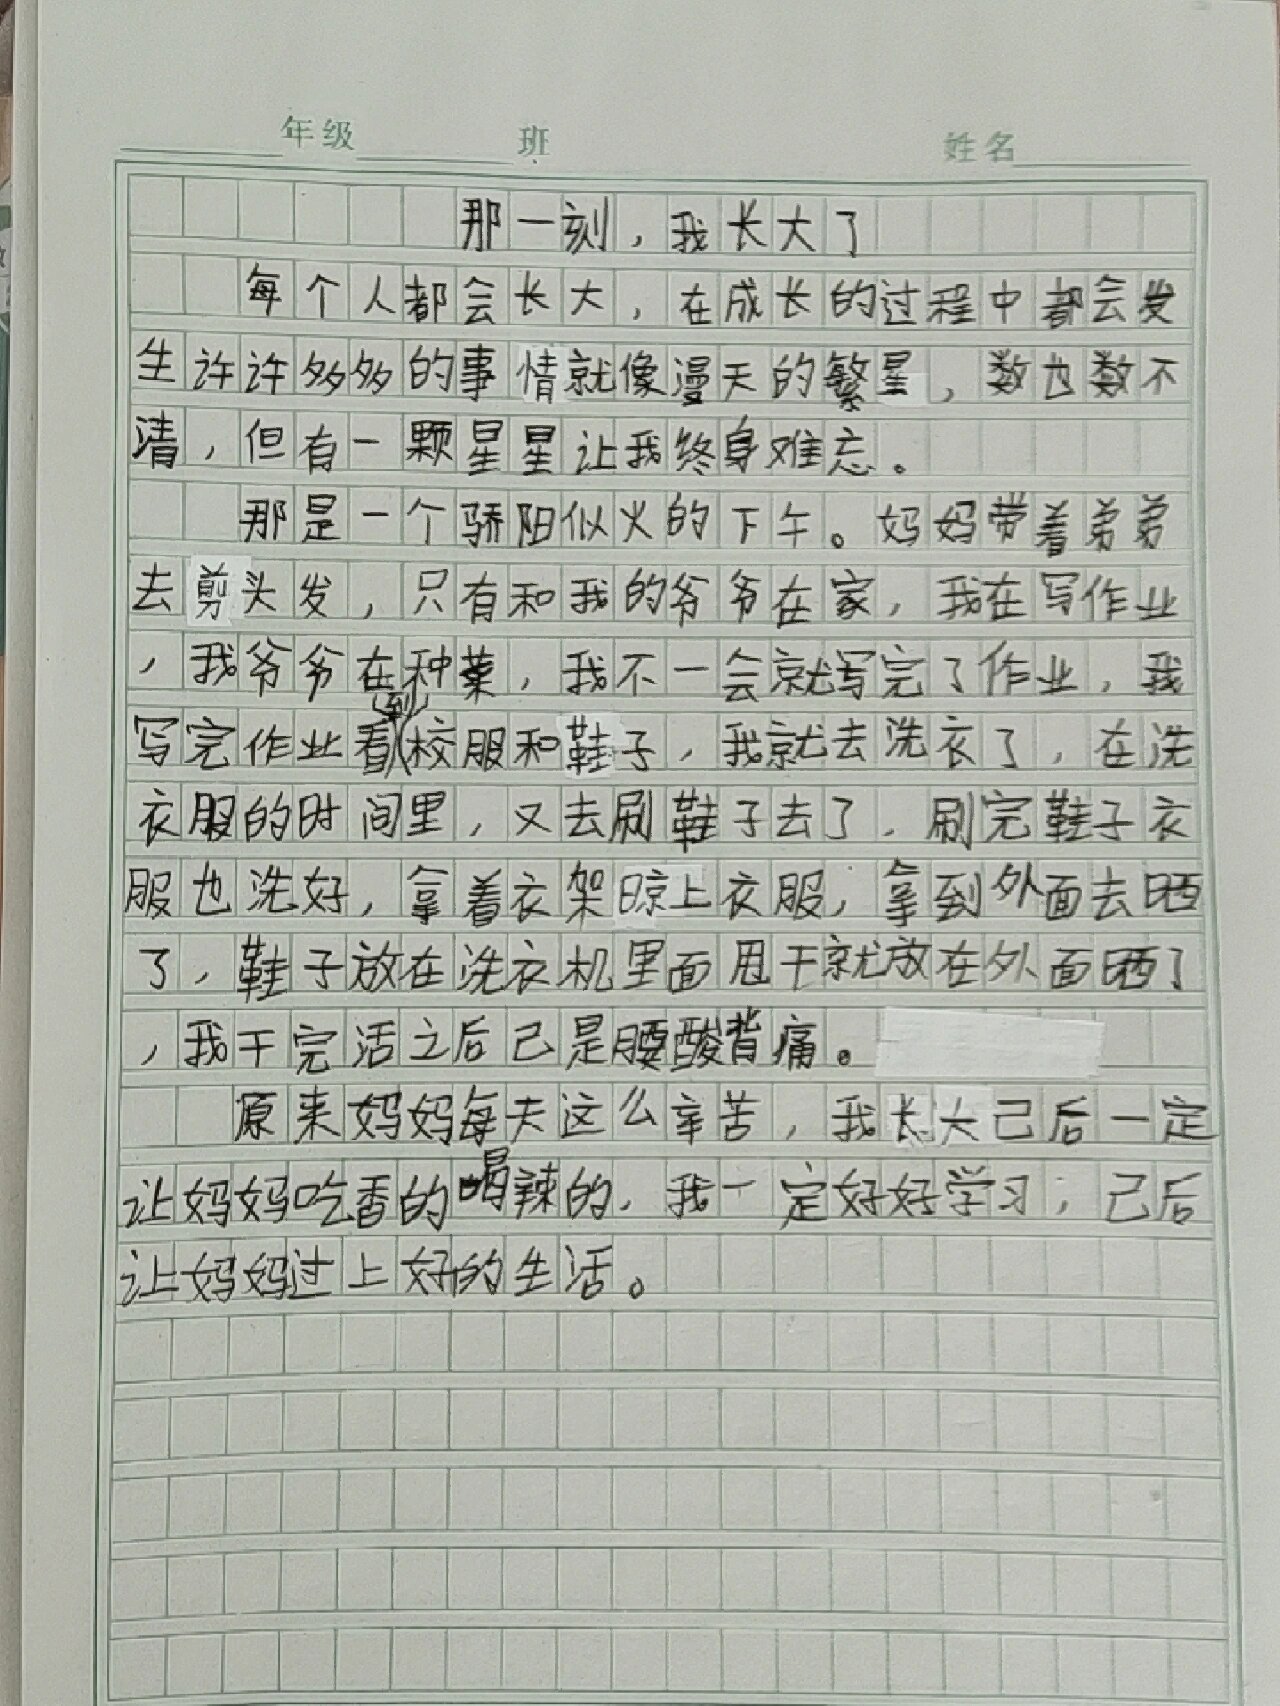 年级 班 姓名
那一刻，我长大了
每个人都会长大，在成长的过程中都会发
生许许多多的事情就像漫天的繁星，数也数不
清，但有一颗星星让我终身难忘。
那是一个骄阳似火的下午。妈妈带着弟弟
去剪头发，只有和我的爷爷在家，我在写作业
，我爷爷在种菜，我不一会就写完了作业，我
写完作业看到校服和鞋子，我就去洗衣了，在洗
衣服的时间里，又去刷鞋子去了，刷完鞋子衣
服也洗好，拿着衣架晾上衣服，拿到外面去晒
了，鞋子放在洗衣机里面甩干就放在外面晒了
，我干完活之后己是腰酸背痛。
原来妈妈每天这么辛苦，我长大己后一定
让妈妈吃香的喝辣的，我一定好好学习，己后
让妈妈过上好的生活。